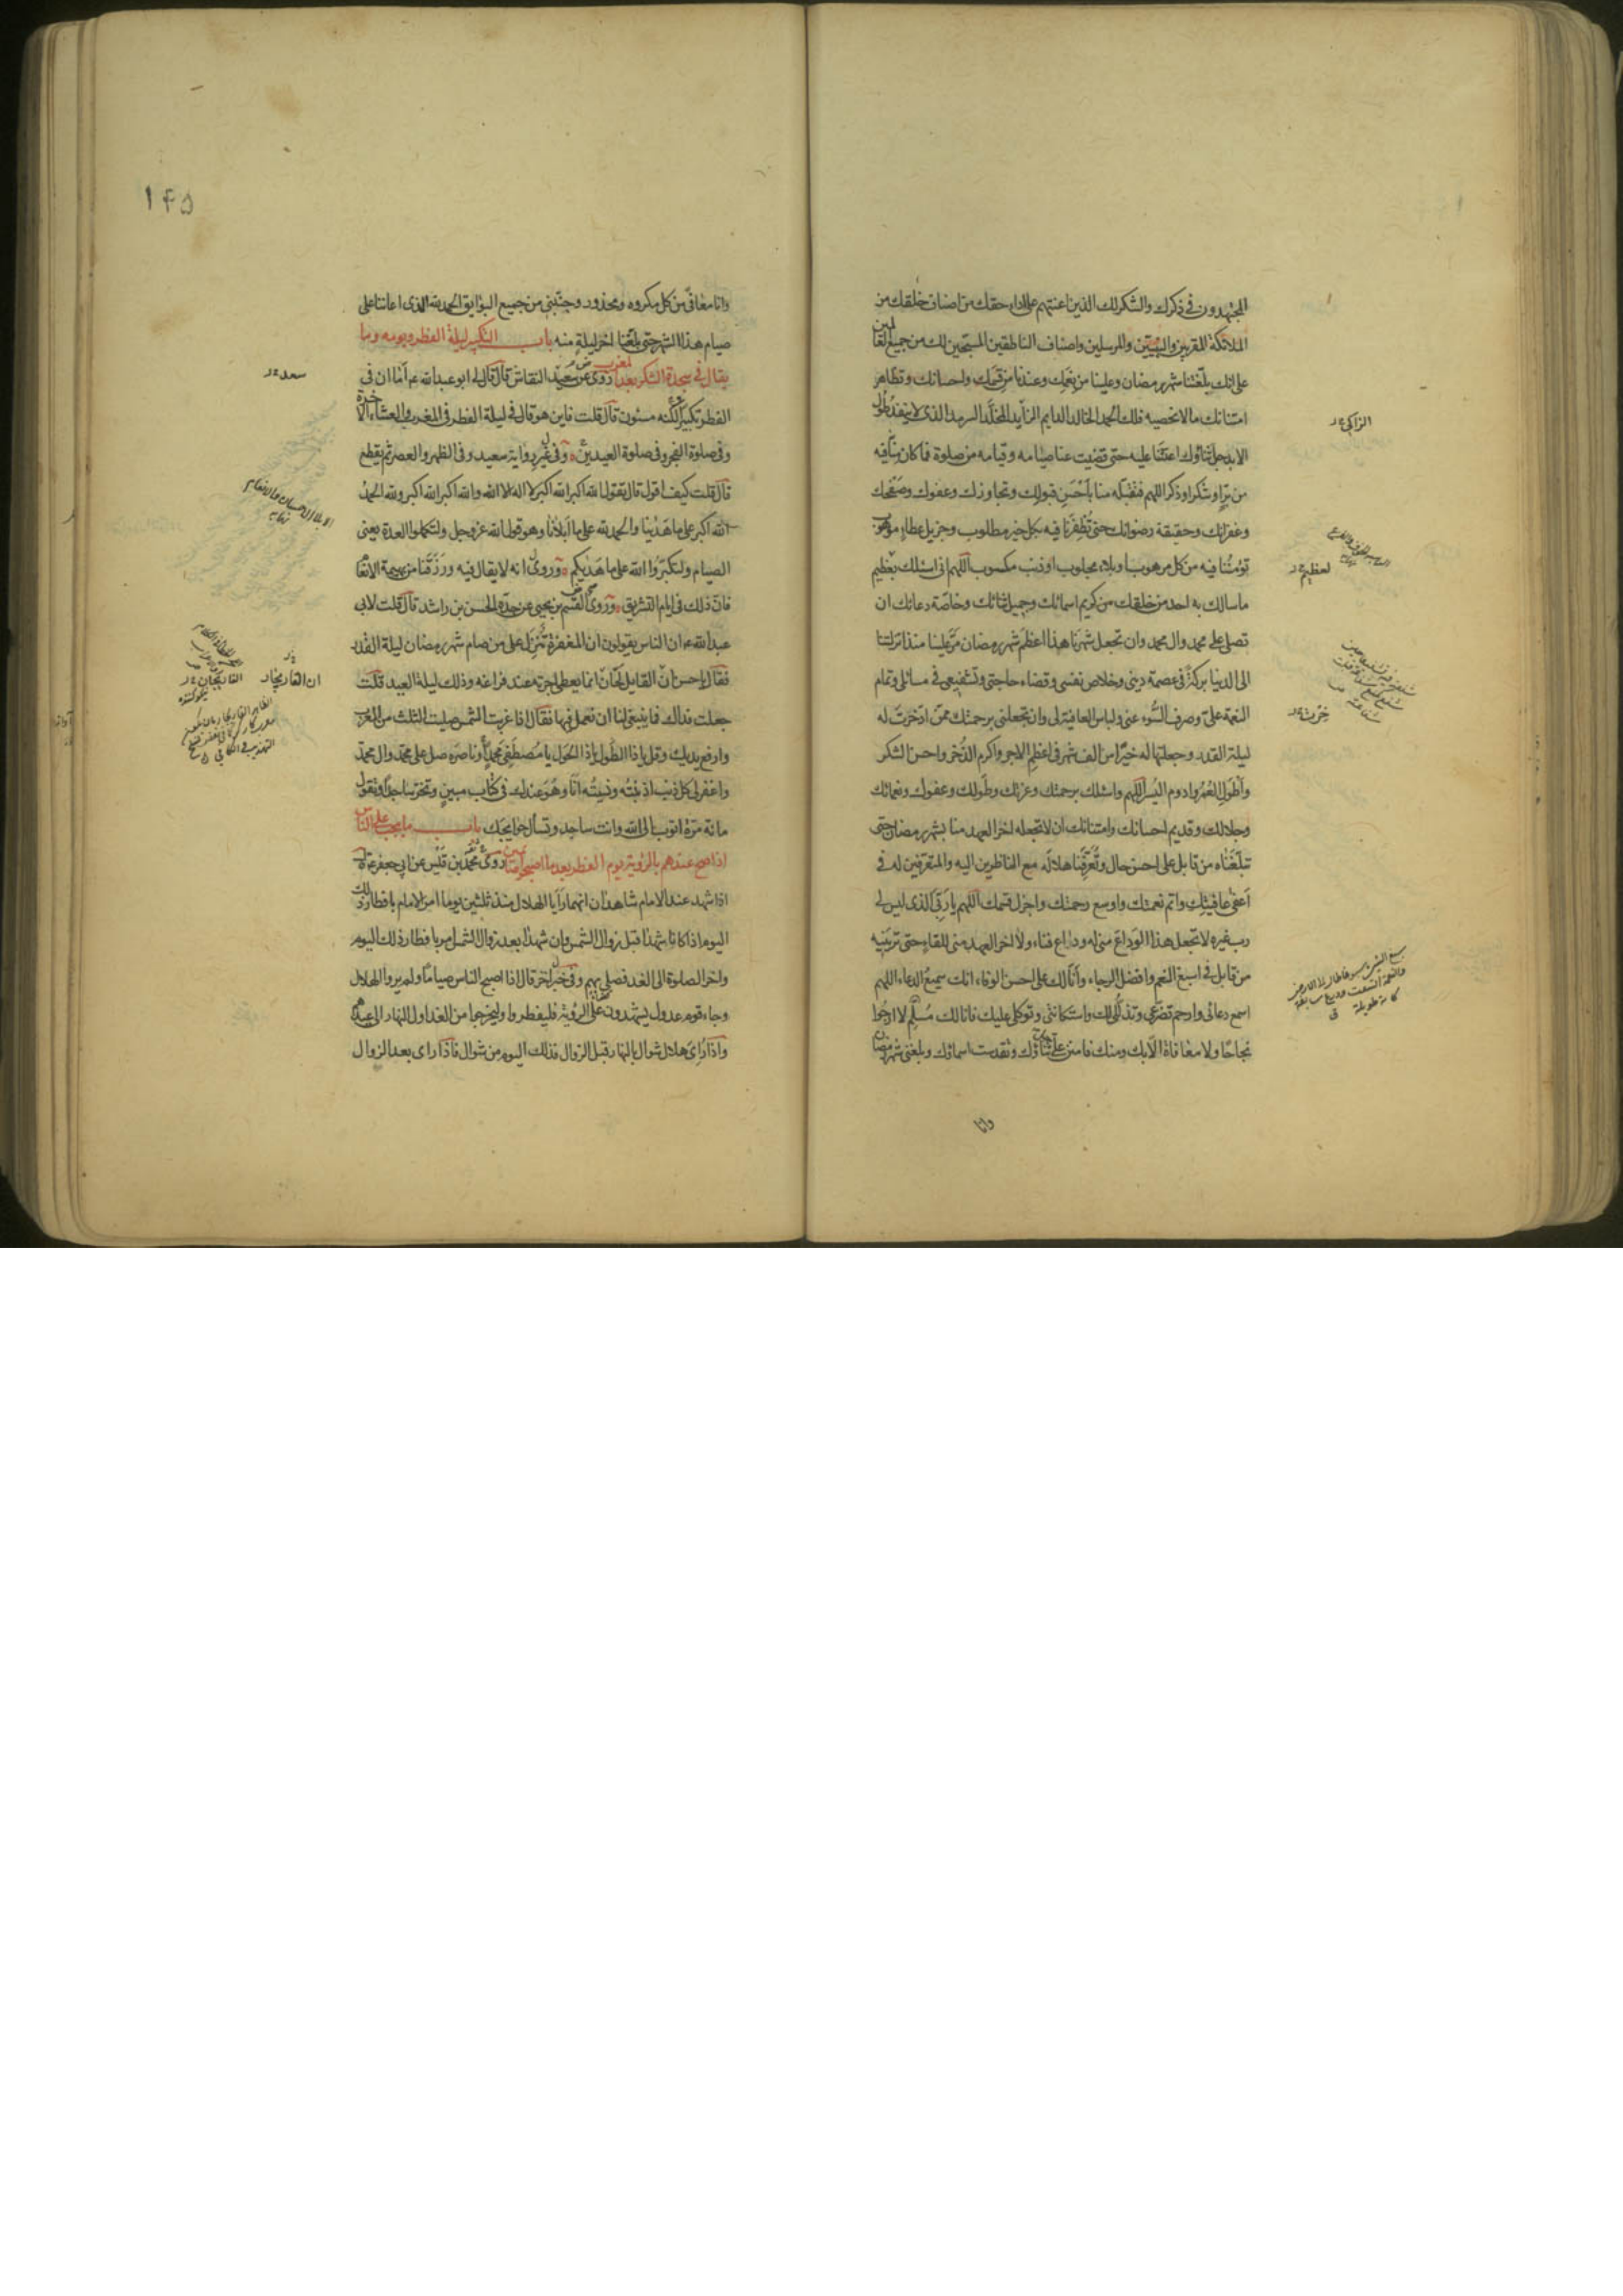 المجتهدون فى ذكرك والشكر لك الذين اعنتهم على اداء حقك من اصناف خلقك من
الملائكة المقربين والنبيين والمرسلين واصناف الناطقين المسبّحين لك من جميع العالمين
على انك بلّغتنا شهر رمضان وعلينا من نعمك وعندنا من قسمك واحسانك وتظاهر
امتنانك ما لا نحصيه فلك الحمد الخالد الدايم الزايد المخلّد السرمد الذى لا ينفد طول
الابد جل ثناؤك اعنتنا عليه حتى قضيت عنا صيامه وقيامه من صلوة فما كان منّا فيه
من برّ او شكر او ذكر اللهم فتقبّله منا باحسن قبولك وتجاوزك وعفوك وصفحك
وغفرانك وحقيقة رضوانك حتى تظفرنا فيه بكل خير مطلوب وجزيل عطاء موهوب
تؤمننا فيه من كل مرهوب او بلاء مجلوب او ذنب مكسوب اللهم انى اسئلك بعظيم
ما سالك به احد من خلقك من كريم اسمائك وجميل ثنائك وخاصّة دعائك ان
تصلى على محمد وال محمد وان تجعل شهرنا هذا اعظم شهر رمضان مرّ علينا منذ انزلتنا
الى الدنيا بركةً فى عصمة دينى وخلاص نفسى وقضاء حاجتى وتشفيعى فى مسائلى وتمام
النعمة علىّ وصرف السّوء عنى ولباس العافية لى وان تجعلنى برحمتك ممّن ادّخرت له
ليلة القدر وجعلتها له خيرًا من الف شهر فى اعظم الاجر واكرم الذّخر واحسن الشكر
واطول العمر وادوم اليسر اللهم واسئلك برحمتك وعزتك وطولك وعفوك ونعمائك
وجلالك وقديم احسانك وامتنانك ان لا تجعله اخر العهد منا بشهر رمضان حتى
تبلّغناه من قابل على احسن حال وتعرّفنا هلاله مع الناظرين اليه والمتعرّفين له فى
اعفى عافيتك واتم نعمتك واوسع رحمتك واجزل قسمك اللهم يا ربّى الذى ليس لى
رب غيره لا تجعل هذا الوداع منى له وداع فناء ولا اخر العهد منى للقاء حتى ترينيه
من قابل فى اسبغ النعم وافضل الرجاء وانا لك على احسن الوفاء انك سميع الدعاء اللهم
اسمع دعائى وارحم تضرّعى وتذلّلى لك واستكانتى وتوكلى عليك فانا لك مُسلّم لا ارجوا
نجاحًا ولا معافاة الّا بك ومنك فامنن علىّ جل ثناؤك وتقدست اسماؤك وبلغنى شهر رمضان
الزاكى خ ر
لعظيم خ ر
وانا
١۴۵
وانا معافًى من كل مكروه ومحذور وجنّبنى من جميع البوايق الحمد لله الذى اعاننا على
صيام هذا الشهر حتى بلّغنا اخر ليلةٍ منه باب التكبير ليلة الفطر ويومه وما
يقال فى سجدة الشكر بعد المغرب روى عن سعيد النقاش قال قال لى ابو عبد الله ع اما ان فى
الفطر تكبيرًا لكنه مسنون قال قلت فاين هو قال فى ليلة الفطر فى المغرب والعشاء الاخرة
وفى صلوة الفجر وفى صلوة العيدين وفى غير رواية سعيد وفى الظهر والعصر ثم يقطع
قال قلت كيف اقول قال تقول الله اكبر الله اكبر لا اله الا الله والله اكبر الله اكبر ولله الحمد
الله اكبر على ما هدينا والحمد لله على ما ابلانا وهو قول الله عز وجل ولتكملوا العدة يعنى
الصيام ولتكبّروا الله على ما هديكم وروى انه لا يقال فيه ورزقنا من بهيمة الانعام
فان ذلك فى ايام التشريق وروى القسم بن يحيى عن جدّه الحسن بن راشد قال قلت لابى
عبد الله ع ان الناس يقولون ان المغفرة تنزل على من صام شهر رمضان ليلة القدر
فقال يا حسن انّ القايل لحّان انما يعطى اجرته عند فراغه وذلك ليلة العيد قلت
جعلت فداك فما ينبغى لنا ان نعمل فيها فقال اذا غربت الشمس صليت الثلث من المغرب
وارفع يديك وقل يا ذا الطول يا ذا الحول يا مصطفى محمدٍ وناصره صل على محمد وال محمد
واغفر لى كل ذنب اذنبته ونسيته انا وهو عندك فى كتاب مبين وتخرّ ساجدًا وتقول
مائة مرّة اتوب الى الله وانت ساجد وتسأل حوايجك باب ما يجب على الناس
اذا صح عندهم بالرؤية يوم الفطر بعد ما اصبحوا صائمين روى محمد بن قيس عن ابى جعفر ع قال
اذا شهد عند الامام شاهدان انهما رايا الهلال منذ ثلثين يوما امر الامام بافطار ذلك
اليوم اذا كانا شهدا قبل زوال الشمس وان شهدا بعد زوال الشمس امر بافطار ذلك اليوم
واخر الصلوة الى الغد فصلى بهم وفى خبر اخر قال اذا اصبح الناس صيامًا ولم يروا الهلال
وجاء قوم عدول يشهدون على الرؤية فليفطروا وليخرجوا من الغد اول النهار الى عيدهم
واذا راى هلال شوال بالنهار قبل الزوال فذلك اليوم من شوال فاذا راى بعد الزوال
سعد خ ر